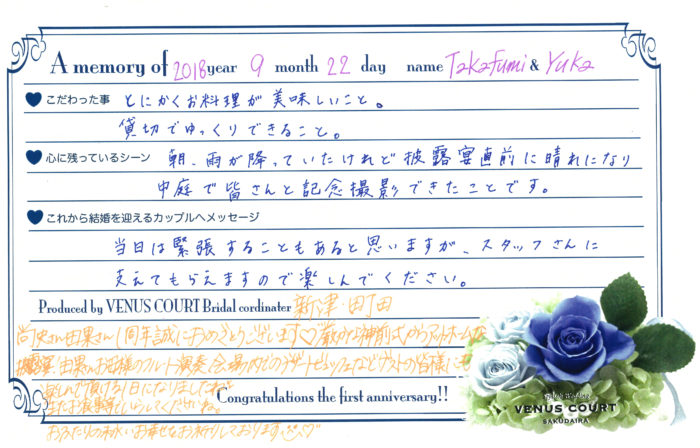 A memory of 2018 year 9 month 22 day name Takafumi & Yuka
こだわった事 とにかくお料理が美味しいこと。
貸切でゆっくりできること。
心に残っているシーン 朝、雨が降っていたけれど披露宴直前に晴れになり
中庭で皆さんと記念撮影できたことです。
これから結婚を迎えるカップルへメッセージ
当日は緊張することもあると思いますが、スタッフさんに
支えてもらえますので楽しんでください。
Produced by VENUS COURT Bridal cordinater 新津・町田
尚史さん由果さん1周年誠におめでとうございます♡
披露宴 由果さんお母様のフルート演奏 会場内でのデザートビュッフェなどゲストの皆様にも
楽しんで頂ける1日になりましたね。
またお食事等でいらしてくださいね。
Congratulations the first anniversary!!
お二人の末永いお幸せをお祈りしております♡
VENUS COURT
SAKUDAIRA